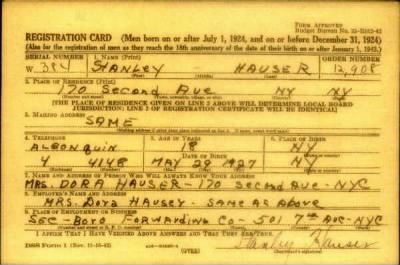 FORM APPROVED
Budget Bureau No. 33-R102-42
REGISTRATION CARD—(Men born on or after July 1, 1924, and on or before December 31, 1924)
(Also for the registration of men as they reach the 18th anniversary of the date of their birth on or after January 1, 1943.)
SERIAL NUMBER 1. NAME (Print) ORDER NUMBER
W 384 STANLEY — HAUSER 12,908
(First) (Middle) (Last)
2. PLACE OF RESIDENCE (Print)
170 Second Ave NY NY
(Number and street) (Town, township, village, or city) (County) (State)
[THE PLACE OF RESIDENCE GIVEN ON LINE 2 ABOVE WILL DETERMINE LOCAL BOARD
JURISDICTION; LINE 2 OF REGISTRATION CERTIFICATE WILL BE IDENTICAL]
3. MAILING ADDRESS
SAME
(Mailing address if other than place indicated on line 2. If same, insert word same)
4. TELEPHONE 5. AGE IN YEARS 6. PLACE OF BIRTH
ALGONQUIN 18 NY
DATE OF BIRTH
4 4148 MAY 29 1927 NY
7. NAME AND ADDRESS OF PERSON WHO WILL ALWAYS KNOW YOUR ADDRESS
MRS. DORA HAUSER - 170 Second Ave - NYC
8. EMPLOYER'S NAME AND ADDRESS
MRS. Dora Hauser - Same as above
9. PLACE OF EMPLOYMENT OR BUSINESS
Boro Forwarding Co - 501 7th Ave - NYC
I AFFIRM THAT I HAVE VERIFIED ABOVE ANSWERS AND THAT THEY ARE TRUE.
DSS Form 1 (Rev. 11-16-42) (OVER) Stanley Hauser